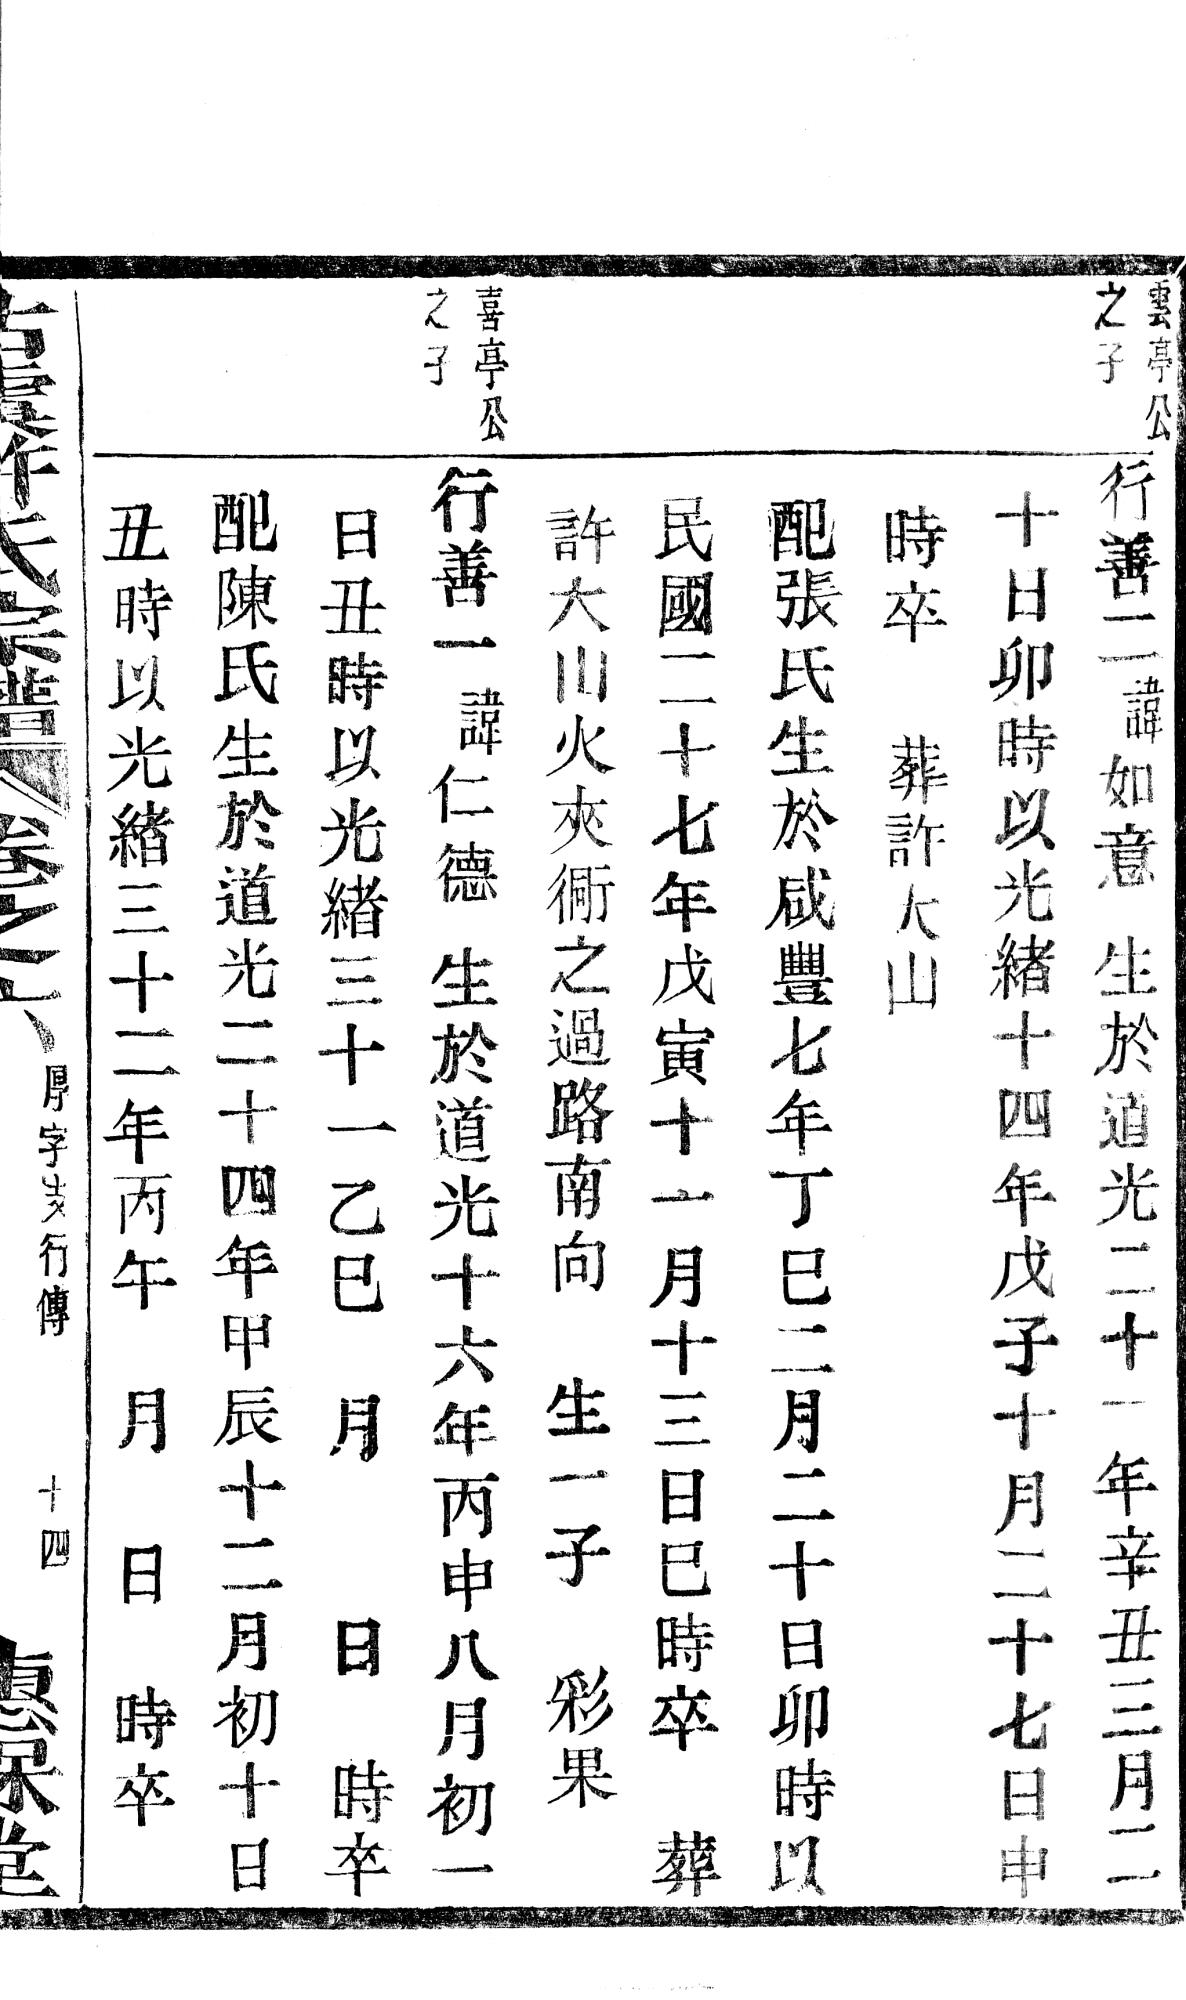 雲亭公
之子
行善二諱如意　生於道光二十一年辛丑三月二
十日卯時以光緒十四年戊子十月二十七日申
時卒　葬許大山
配張氏生於咸豐七年丁巳二月二十日卯時以
民國二十七年戊寅十一月十三日巳時卒　葬
許大山火夾衕之過路南向　生一子　彩果
喜亭公
之子
行善一諱仁德　生於道光十六年丙申八月初一
日丑時以光緒三十一乙巳　月　日　時卒
配陳氏生於道光二十四年甲辰十二月初十日
丑時以光緒三十二年丙午　月　日　時卒
許氏宗譜　卷之　厚字支行傳　十四　惠保堂